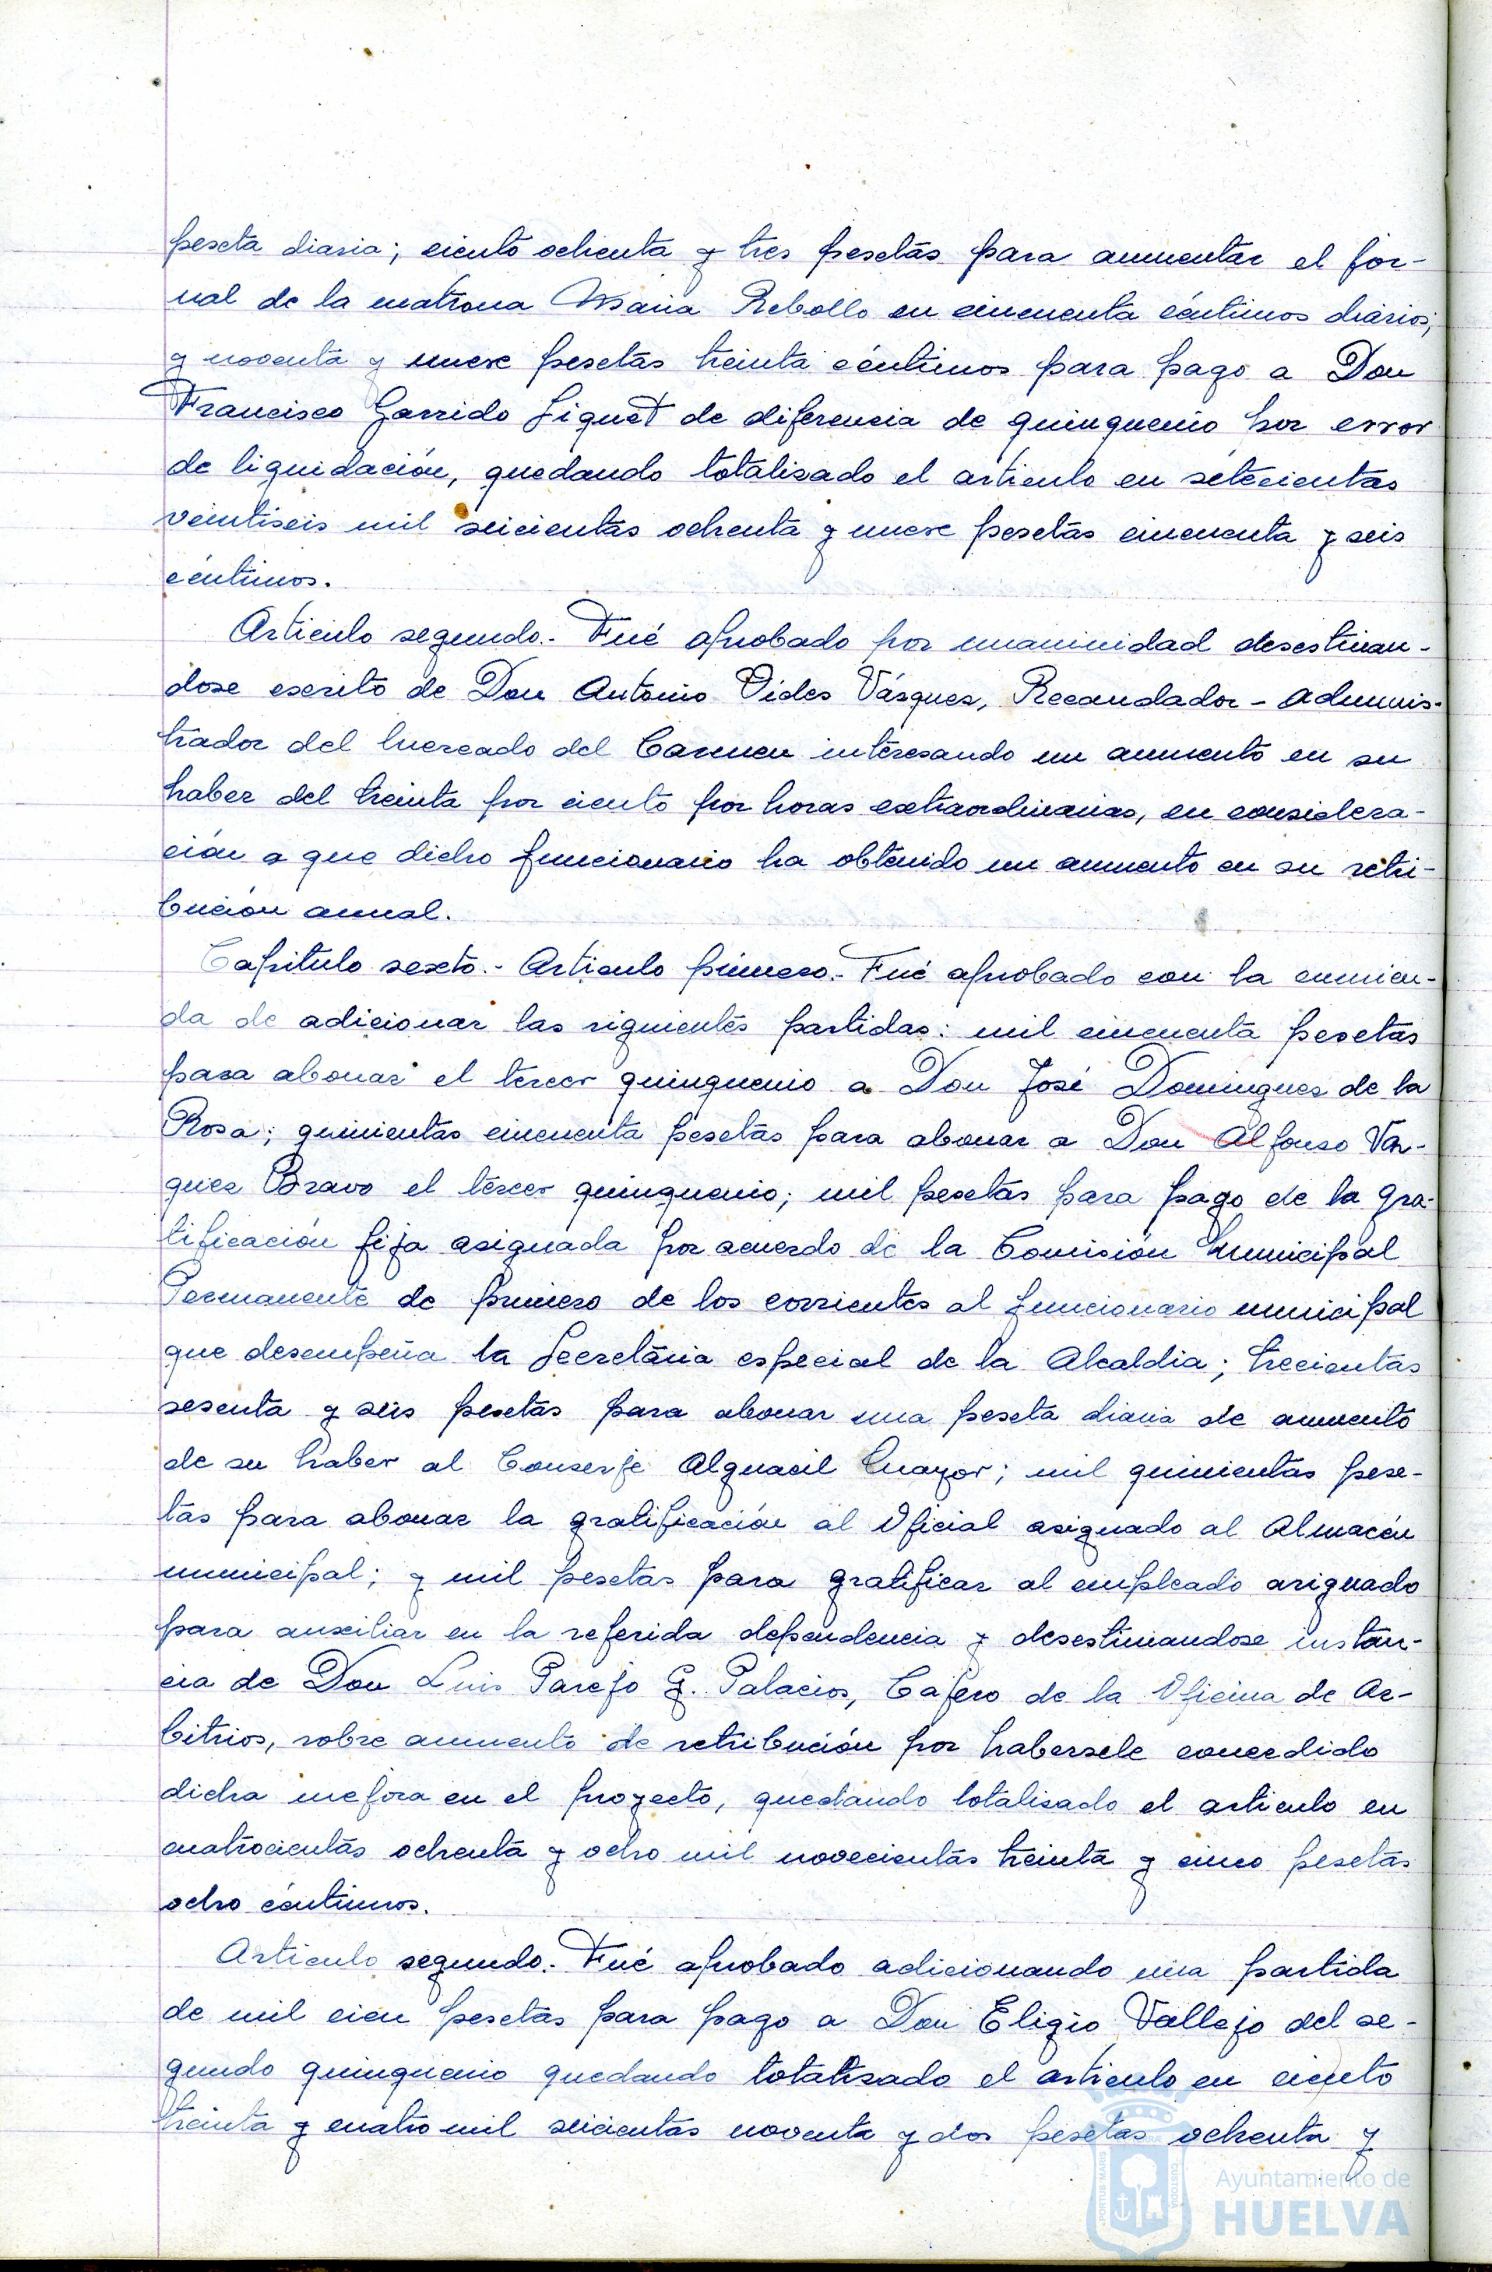 peseta diaria; ciento ochenta y tres pesetas para aumentar el jor-
nal de la matrona Maria Rebollo en cincuenta céntimos diarios;
y noventa y nueve pesetas treinta céntimos para pago a Don
Francisco Garrido Liguet de diferencia de quinquenio por error
de liquidación, quedando totalizado el articulo en setecientas
veintiseis mil seicientas ochenta y nueve pesetas cincuenta y seis
céntimos.
Articulo segundo.- Fué aprobado por unanimidad desestiman-
dose escrito de Don Antonio Vides Vásquez, Recaudador - adminis-
trador del Mercado del Carmen interesando un aumento en su
haber del treinta por ciento por horas extraordinarias, en considera-
ción a que dicho funcionario ha obtenido un aumento en su retri-
bución anual.
Capitulo sexto.- Articulo primero.- Fué aprobado con la enmien-
da de adicionar las siguientes partidas: mil cincuenta pesetas
para abonar el tercer quinquenio a Don José Dominguez de la
Rosa; quinientas cincuenta pesetas para abonar a Don Alfonso Vaz-
quez Bravo el tercer quinquenio; mil pesetas para pago de la gra-
tificación fija asignada por acuerdo de la Comisión Municipal
Permanente de primero de los corrientes al funcionario municipal
que desempeña la Secretaria especial de la Alcaldia; trecientas
sesenta y seis pesetas para abonar una peseta diaria de aumento
de su haber al Conserje Alguacil Mayor; mil quinientas pese-
tas para abonar la gratificación al Oficial asignado al Almacén
municipal; y mil pesetas para gratificar al empleado asignado
para auxiliar en la referida dependencia y desestimandose instan-
cia de Don Luis Parejo G. Palacios, Cajero de la Oficina de Ar-
bitrios, sobre aumento de retribución por habersele concedido
dicha mejora en el proyecto, quedando totalizado el articulo en
cuatrocientas ochenta y ocho mil novecientas treinta y cinco pesetas
ocho céntimos.
Articulo segundo.- Fué aprobado adicionando una partida
de mil cien pesetas para pago a Don Eligio Vallejo del se-
gundo quinquenio quedando totalizado el articulo en ciento
treinta y cuatro mil seicientas noventa y dos pesetas ochenta y
Ayuntamiento de
HUELVA